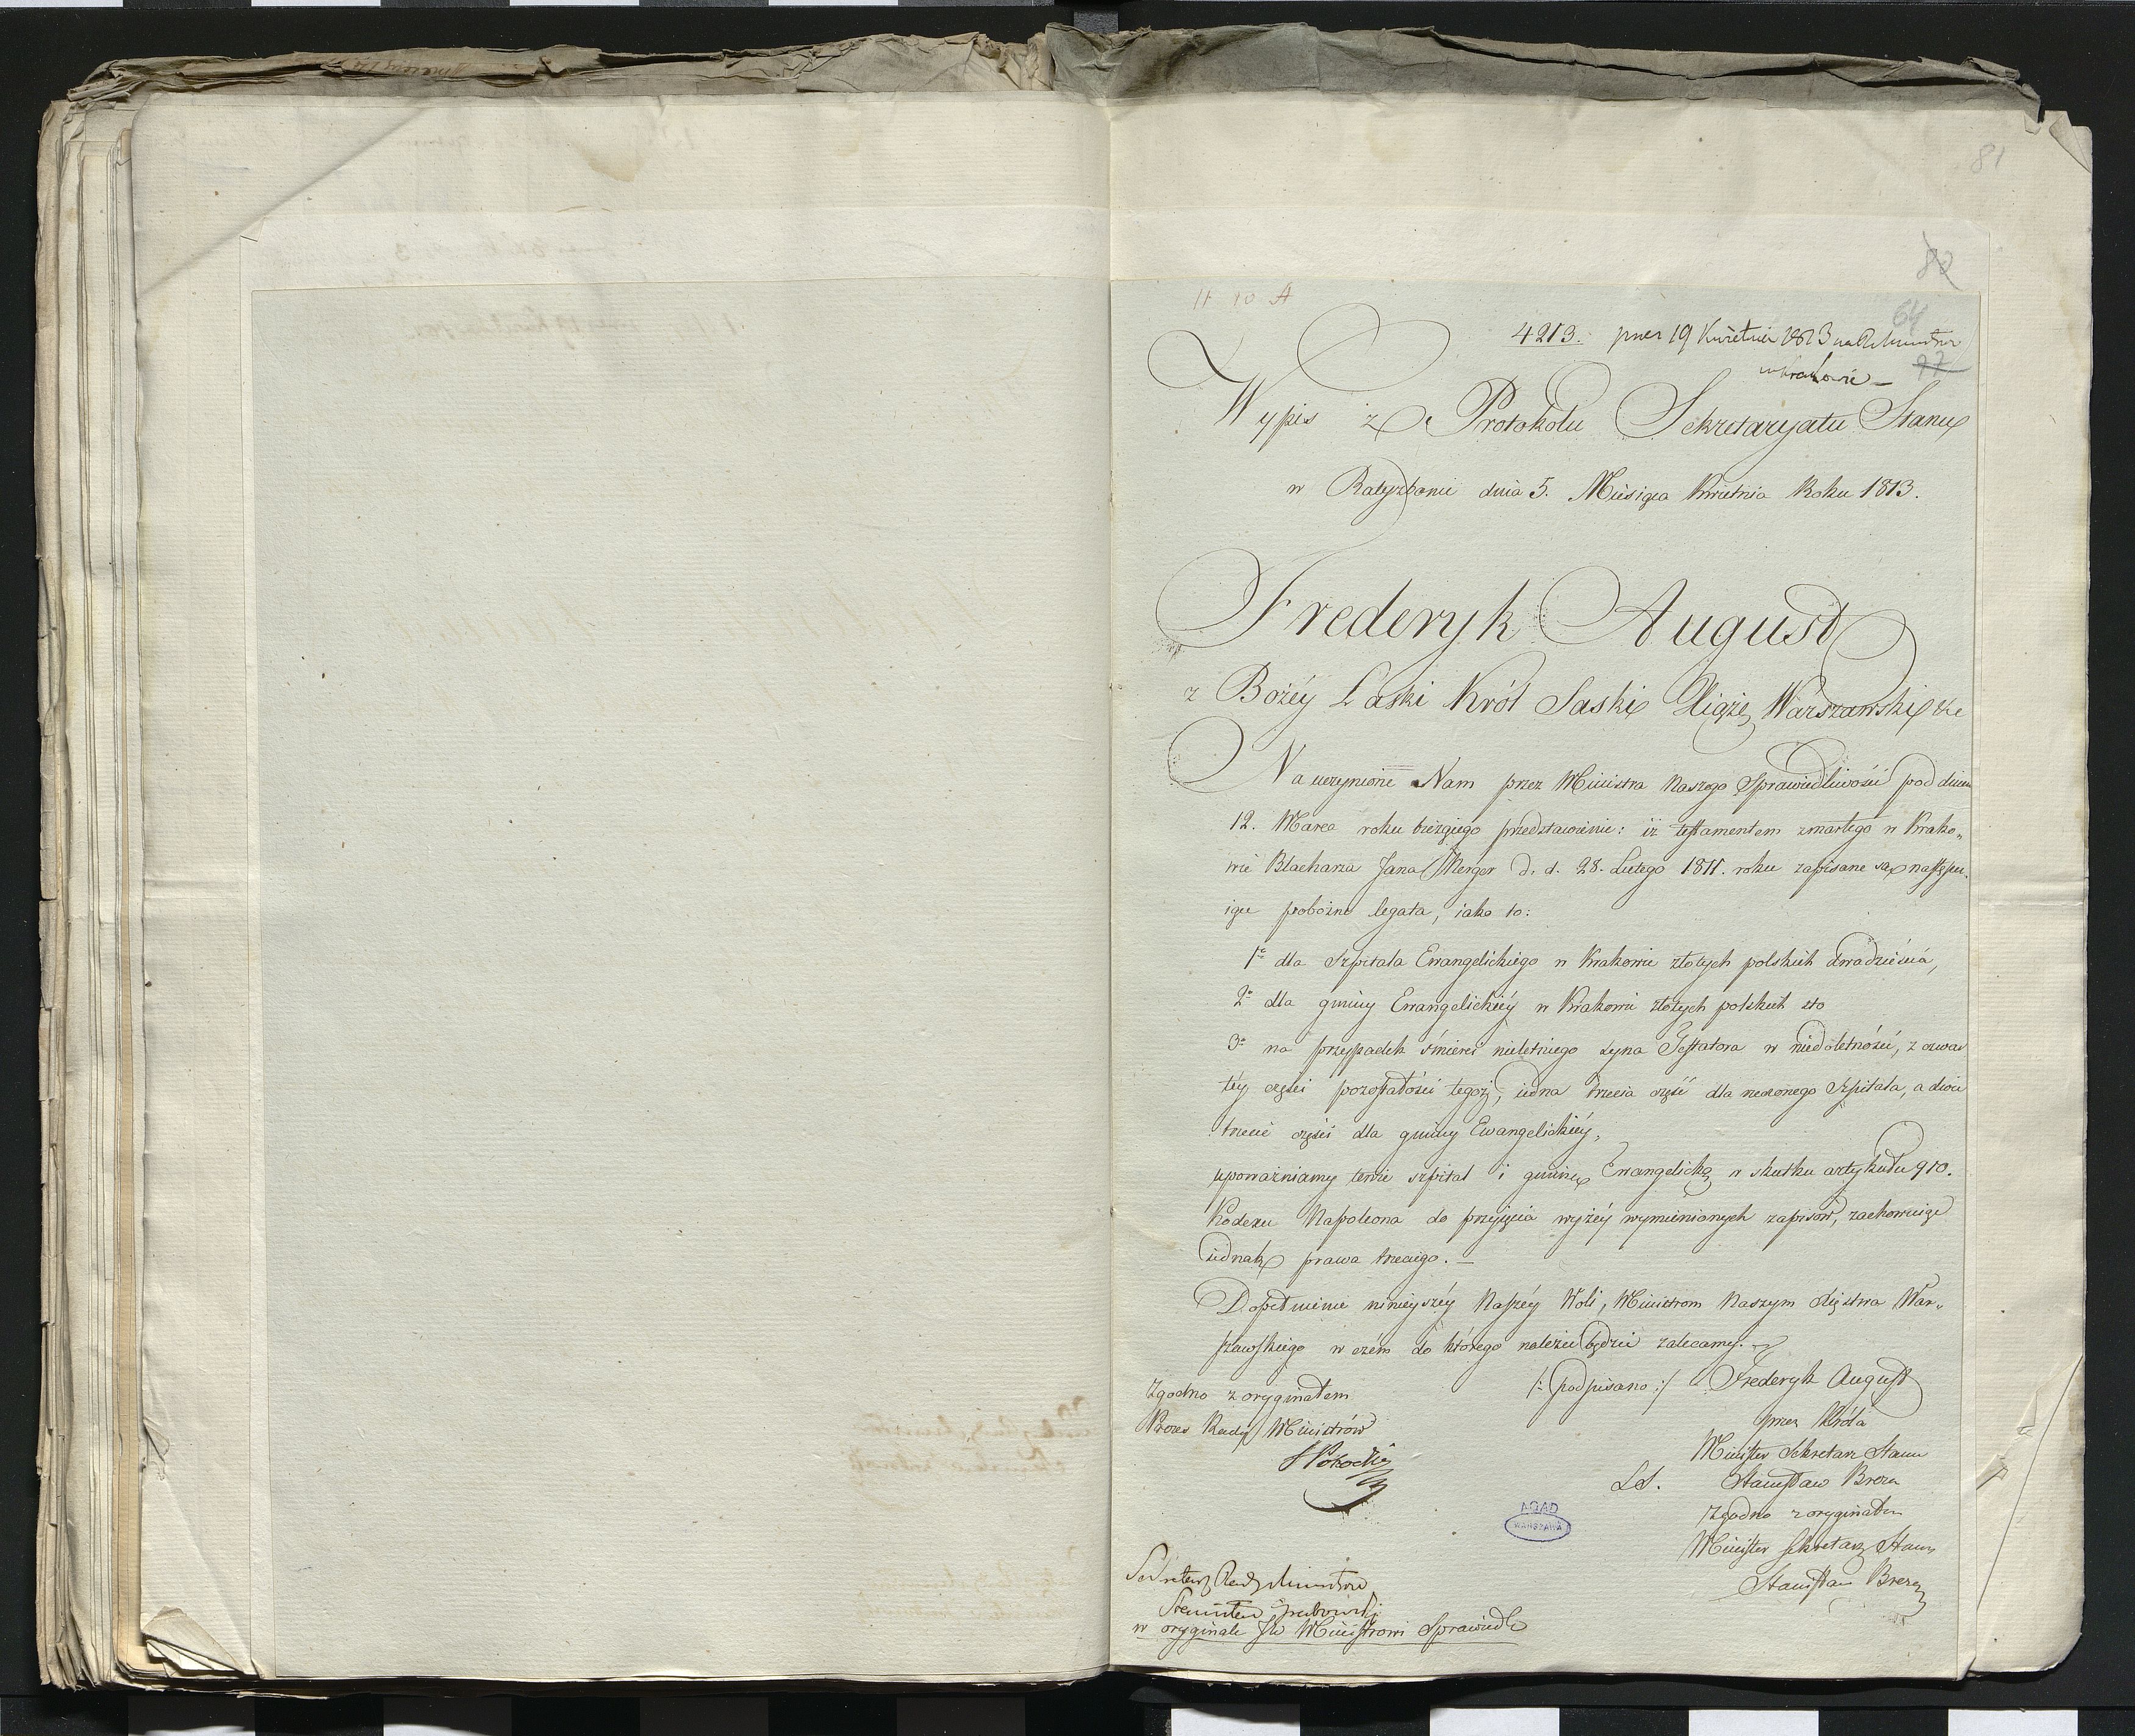 81
80
64
77
11 10 A
4213. prez 19 Kwietnia 1813 na R. Ministrów
w Krakowie –
Wypis z Protokołu Sekretaryatu Stanu
w Ratyzbonie dnia 5. Miesiąca Kwietnia Roku 1813.
Frederyk August
z Bożéy Łaski Król Saski Xiąże Warszawski &c
Na uczynione Nam przez Ministra Naszego Sprawiedliwości pod dniem
12. Marca roku bieżącego przedstawienie: iż testamentem zmarłego w Krako„
wie Blacharza Jana Merger d. d. 28. Lutego 1811. roku zapisane są następu„
iące pobożne legata, iako to:
1e dla Szpitala Ewangelickiego w Krakowie złotych polskich dwadzieścia,
2e dla gminy Ewangelickiéy w Krakowie złotych polskich sto
3e na przypadek śmierci nieletniego syna Testatora w niedoletności, z czwar
téy części pozostałości tegoż, iedna trzecia część dla rzeczonego Szpitala, a dwie
trzecie części dla gminy Ewangelickiéy,
upoważniamy tenże szpital i gminę Ewangelicką w skutku artykułu 910.
Kodexu Napoleona do przyięcia wyżéy wymienionych zapisów, zachowuiąc
iednak prawa trzeciego. –
Dopełnienie ninieyszéy Naszéy Woli, Ministrom Naszym Xięstwa War„
szawskiego w czém do którego należeć będzie zalecamy.
Zgodno z oryginałem
Prezes Rady Ministrów
S Potocki
/: podpisano :/ Frederyk August
przez Króla
Minister Sekretarz Stanu
L.S. Stanisław Breza
Zgodno z oryginałem
Minister Sekretarz Stanu
Stanisław Breza
AGAD
WARSZAWA
Sekretarz Rady Ministrów
Stanisław Grabowski
w oryginale JW Ministrowi Sprawiedl